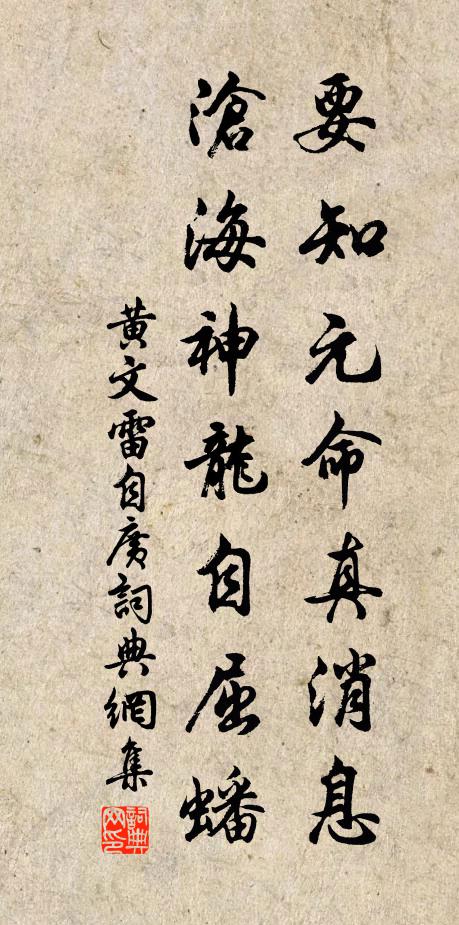 要知元命真消息
滄海神龍自屈蟠
黃文雷自廣詞典網集
詞典網印